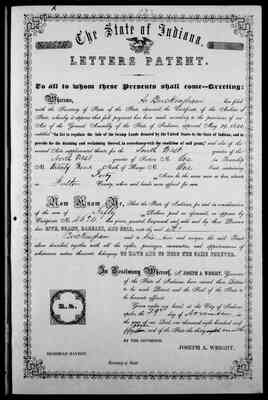 The State of Indiana.
LETTERS PATENT.
To all to whom these Presents shall come—Greeting:
Whereas, Buckingham has filed
with the Secretary of State of the State aforesaid, the Certificate of the Auditor of
State, whereby it appears that full payment has been made according to the provisions of an
Act of the General Assembly of the State of Indiana, approved May 29, 1852,
entitled "An Act to regulate the Sale of the Swamp Lands donated by the United States to the State of Indiana, and to
provide for the draining and reclaiming thereof, in accordance with the condition of said grant," and also of the
several Acts supplemental thereto for the North West quarter of the
North West quarter of Section N. One in Township
N. North of Range N. One containing
Forty Acres be the same more or less, situate
in Fulton County, when said lands were offered for sale.
Now Know Ye, That the State of Indiana, for and in consideration
of the sum of Fifty Dollars paid as aforesaid, as appears by
Certificate No. has given, granted, bargained and sold, and by these Presents
does GIVE, GRANT, BARGAIN, AND SELL, unto the said
Buckingham and to heirs and assigns the said Tract
above described, together with all the rights, privileges, immunities, and appurtenances of
whatsoever nature thereunto belonging TO HAVE AND TO HOLD THE SAME FOREVER.
In Testimony Whereof, I, JOSEPH A. WRIGHT, Governor
of the State of Indiana, have caused these Letters
to be made Patent, and the Seal of the State to
be hereunto affixed.
Given under my hand, at the City of Indianapolis,
the day of November in
the year of our Lord, one thousand eight hundred and
and of the State the thirty
BY THE GOVERNOR,
JOSEPH A. WRIGHT.
L.S.
Secretary of State